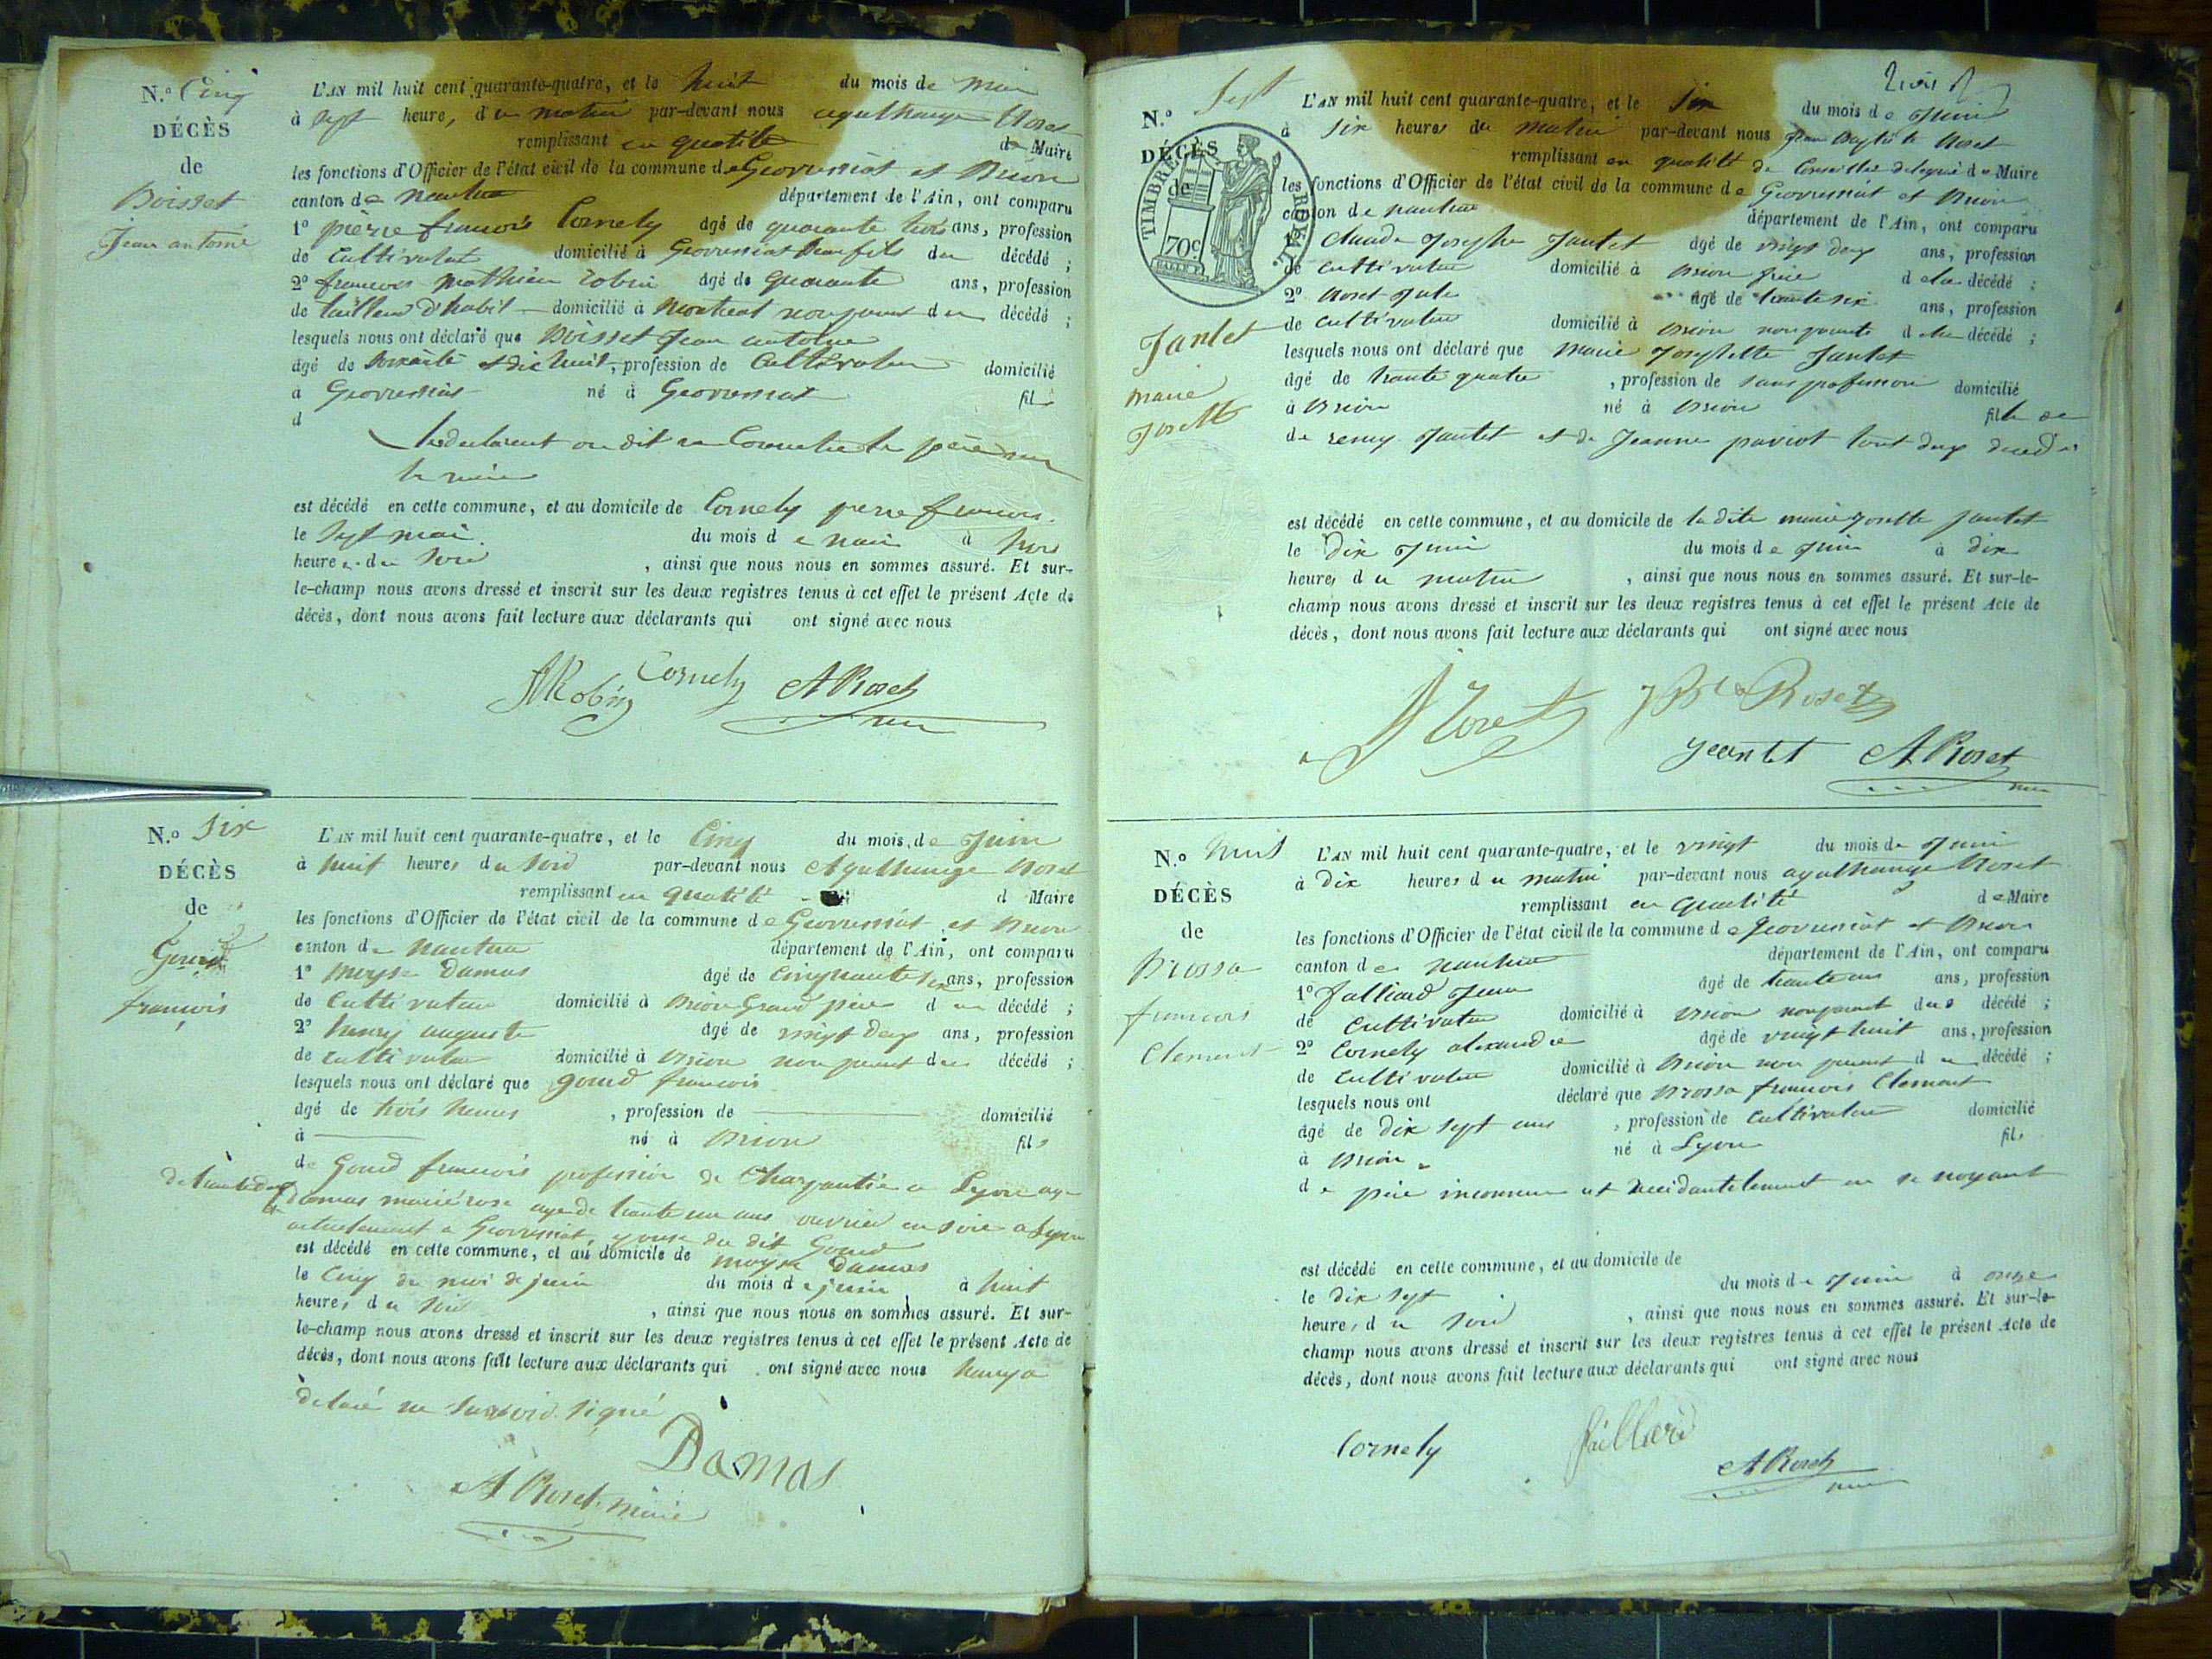 N.º Cinq
DÉCÈS
de
Boisset
Jean antoine
L'AN mil huit cent quarante-quatre, et le huit du mois de mai
à sept heure, du matin par-devant nous agathange Roset
remplissant en qualité de Maire
les fonctions d'Officier de l'état civil de la commune de Geovressiat et Brion
canton de nantua département de l'Ain, ont comparu
1º pierre francois Cornely âgé de quarante trois ans, profession
de Cultivateur domicilié à Geovressiat Beaufils du décédé ;
2º francois mathieu robin âgé de quarante ans, profession
de tailleur d'habit domicilié à montreal non parent du décédé ;
lesquels nous ont déclaré que Boisset Jean antoine
âgé de soixante et dix huit, profession de Cultivateur domicilié
à Geovressiat né à Geovressiat fils
d
les declarant on dit ne Connaitre le père ni
la mère
est décédé en cette commune, et au domicile de Cornely pierre francois.
le sept mai du mois de mai à trois
heure du soir, ainsi que nous nous en sommes assuré. Et sur-
le-champ nous avons dressé et inscrit sur les deux registres tenus à cet effet le présent Acte de
décès, dont nous avons fait lecture aux déclarants qui ont signé avec nous
Robin Cornely A Roset
N.º Six
DÉCÈS
de
Goud
francois
L'AN mil huit cent quarante-quatre, et le Cinq du mois de Juin
à huit heures du soir par-devant nous Agathange Roset
remplissant en qualité d Maire
les fonctions d'Officier de l'état civil de la commune de Geovressiat et Brion
canton de Nantua département de l'Ain, ont comparu
1º moyse Damas âgé de Cinquante six ans, profession
de Cultivateur domicilié à Brion Grand père du décédé ;
2º henry auguste âgé de vingt deux ans, profession
de cultivateur domicilié à Brion non parent du décédé ;
lesquels nous ont déclaré que goud francois
âgé de trois heures, profession de domicilié
à né à Brion fils
de Goud francois profession de Charpantier a Lyon age
de trante deux
et damas marie rose age de trante un ans ouvrier en soie a Lyon
actuelement a Geovressiat, epouse du dit Goud
est décédé en cette commune, et au domicile de moyse Damas
le Cinq du moi de juin du mois de juin à huit
heures du soir, ainsi que nous nous en sommes assuré. Et sur-
le-champ nous avons dressé et inscrit sur les deux registres tenus à cet effet le présent Acte de
décès, dont nous avons fait lecture aux déclarants qui ont signé avec nous henry a
declaré ne savoir signé
Damas
A Roset maire
N.º Sept
DÉCÈS
de
TIMBRE ROYAL
70c
Jantet
marie
Josette
L'AN mil huit cent quarante-quatre, et le six du mois de Juin
à six heures du matin par-devant nous Jean Baptiste Roset
remplissant en qualité de Conseiller delegué de Maire
les fonctions d'Officier de l'état civil de la commune de Geovressiat et Brion
canton de nantua département de l'Ain, ont comparu
1º Claude Josephe Jantet âgé de vingt deux ans, profession
de cultivateur domicilié à Brion d ela décédé ;
2º Roset Jule âgé de trante six ans, profession
de cultivateur domicilié à Brion non parents d ela décédé ;
lesquels nous ont déclaré que marie Josephette Jantet
âgé de trante quatre, profession de sans profession domicilié
à Brion né à Brion fille de
de remy Jantet et de Jeanne paviot tout deux decedes
est décédé en cette commune, et au domicile de la dite marie Josette Jantet
le dix Juin du mois de Juin à dix
heures du matin, ainsi que nous nous en sommes assuré. Et sur-le-
champ nous avons dressé et inscrit sur les deux registres tenus à cet effet le présent Acte de
décès, dont nous avons fait lecture aux déclarants qui ont signé avec nous
J Roset JBte Roset
Jeantet A Roset
N.º huit
DÉCÈS
de
Brossa
francois
Clement
L'AN mil huit cent quarante-quatre, et le vingt du mois de Juin
à dix heures du matin par-devant nous agathange Roset
remplissant en qualité de Maire
les fonctions d'Officier de l'état civil de la commune de Geovressiat et Brion
canton de nantua département de l'Ain, ont comparu
1º Jalliard Jean âgé de trante ans ans, profession
de cultivateur domicilié à Brion non parent du décédé ;
2º Cornely alexandre âgé de vingt huit ans, profession
de cultivateur domicilié à Brion non parent du décédé ;
lesquels nous ont déclaré que Brossa francois Clement
âgé de dix sept ans, profession de cultivateur domicilié
à Brion né à Lyon fils
de père inconnu et accidantelement en se noyant
est décédé en cette commune, et au domicile de
le dix sept du mois de Juin à onze
heures du soir, ainsi que nous nous en sommes assuré. Et sur-le-
champ nous avons dressé et inscrit sur les deux registres tenus à cet effet le présent Acte de
décès, dont nous avons fait lecture aux déclarants qui ont signé avec nous
Cornely Jailliard
A Roset